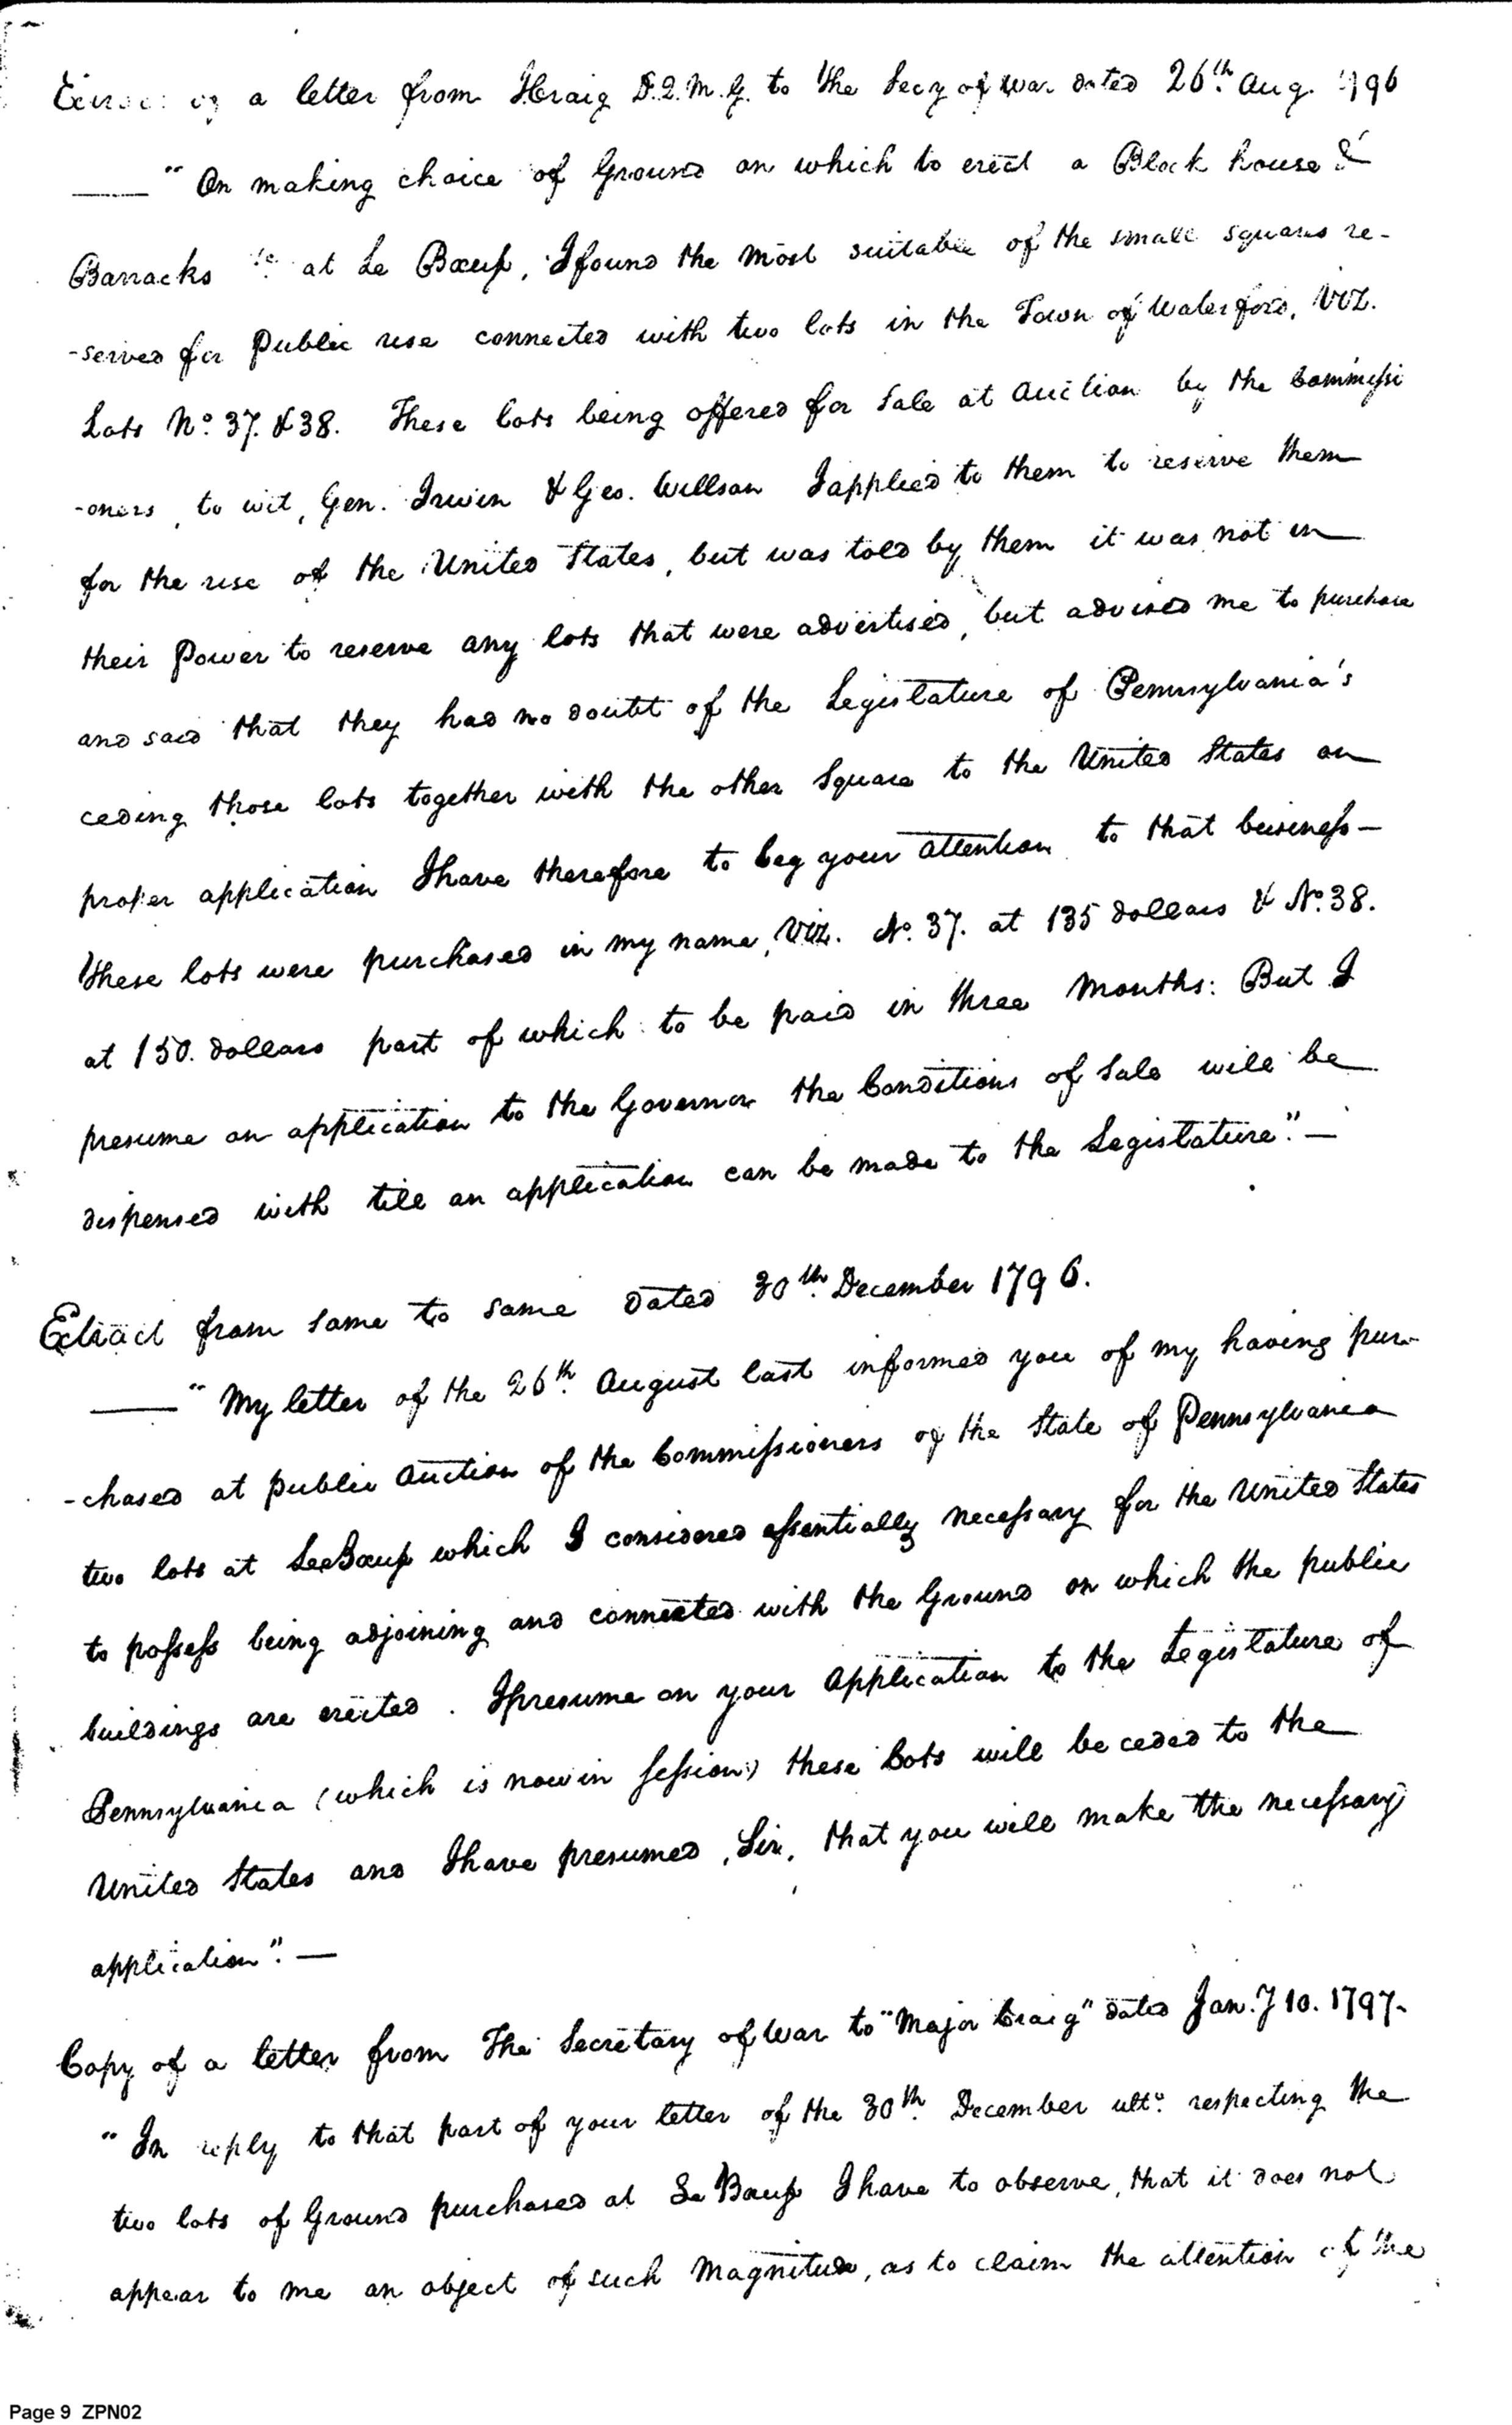 of a letter from I Craig D.Q.M.G. to the Secy of war dated 26th Aug. 1796
"On making choice of Ground on which to erect a Block house &
Barracks &c at Le Bœuf, I found the most suitable of the small squares re-
-served for Public use connected with two lots in the Town of Waterford, Viz.
Lots No. 37. & 38. These lots being offered for sale at auction by the Commissi
-oners, to wit, Gen. Irwin & Geo. Willson I applied to them to reserve them
for the use of the United States, but was told by them it was not in
their Power to reserve any lots that were advertised, but advised me to purchase
and said that they had no doubt of the Legislature of Pennsylvania's
ceding those lots together with the other Square to the United States on
proper application I have therefore to beg your attention to that business—
These lots were purchased in my name, Viz. No. 37. at 135 dollars & No. 38.
at 150. dollars part of which to be paid in three Months: But I
presume on application to the Governor the Conditions of Sale will be
dispensed with till an application can be made to the Legislature".—
Extract from same to same dated 30th December 1796.
"My letter of the 26th August last informed you of my having pur-
-chased at public auction of the Commissioners of the State of Pennsylvania
two lots at LeeBœuf which I considered essentially necessary for the United States
to possess being adjoining and connected with the Ground on which the public
buildings are erected. I presume on your application to the Legislature of
Pennsylvania (which is now in session) these Lots will be ceded to the
United States and I have presumed, Sir, that you will make the necessary
application".—
Copy of a letter from The Secretary of War to "Major Craig" dated Jan.y 10. 1797-
"In reply to that part of your letter of the 30th December ulto. respecting the
two lots of Ground purchased at Le Bœuf I have to observe, that it does not
appear to me an object of such Magnitude, as to claim the attention of the
Page 9 ZPN02